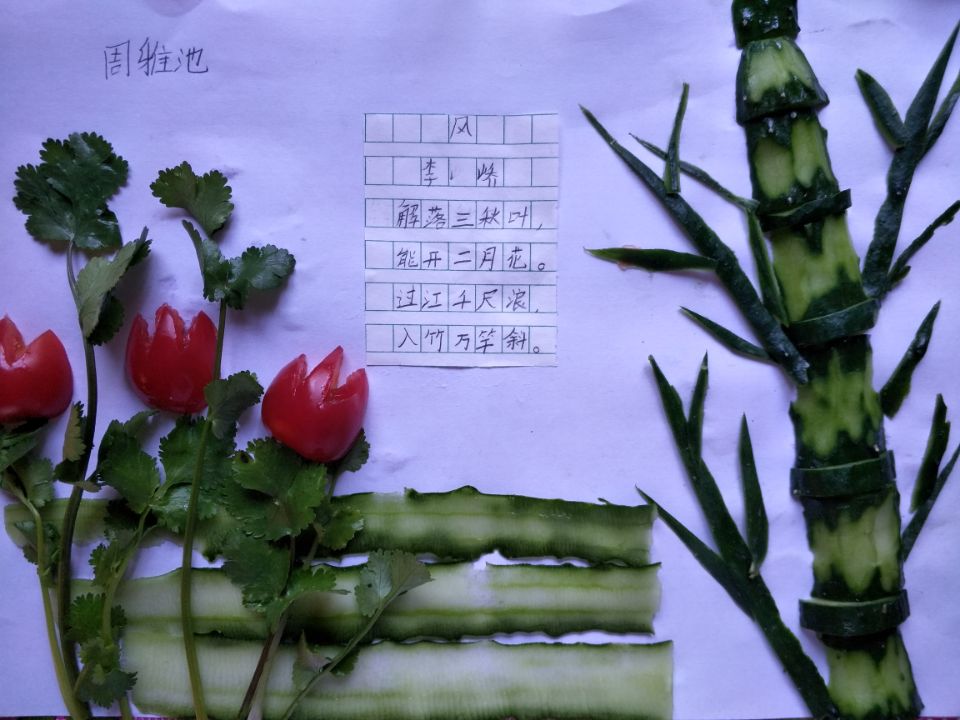 周雅池
风
李峤
解落三秋叶，
能开二月花。
过江千尺浪，
入竹万竿斜。